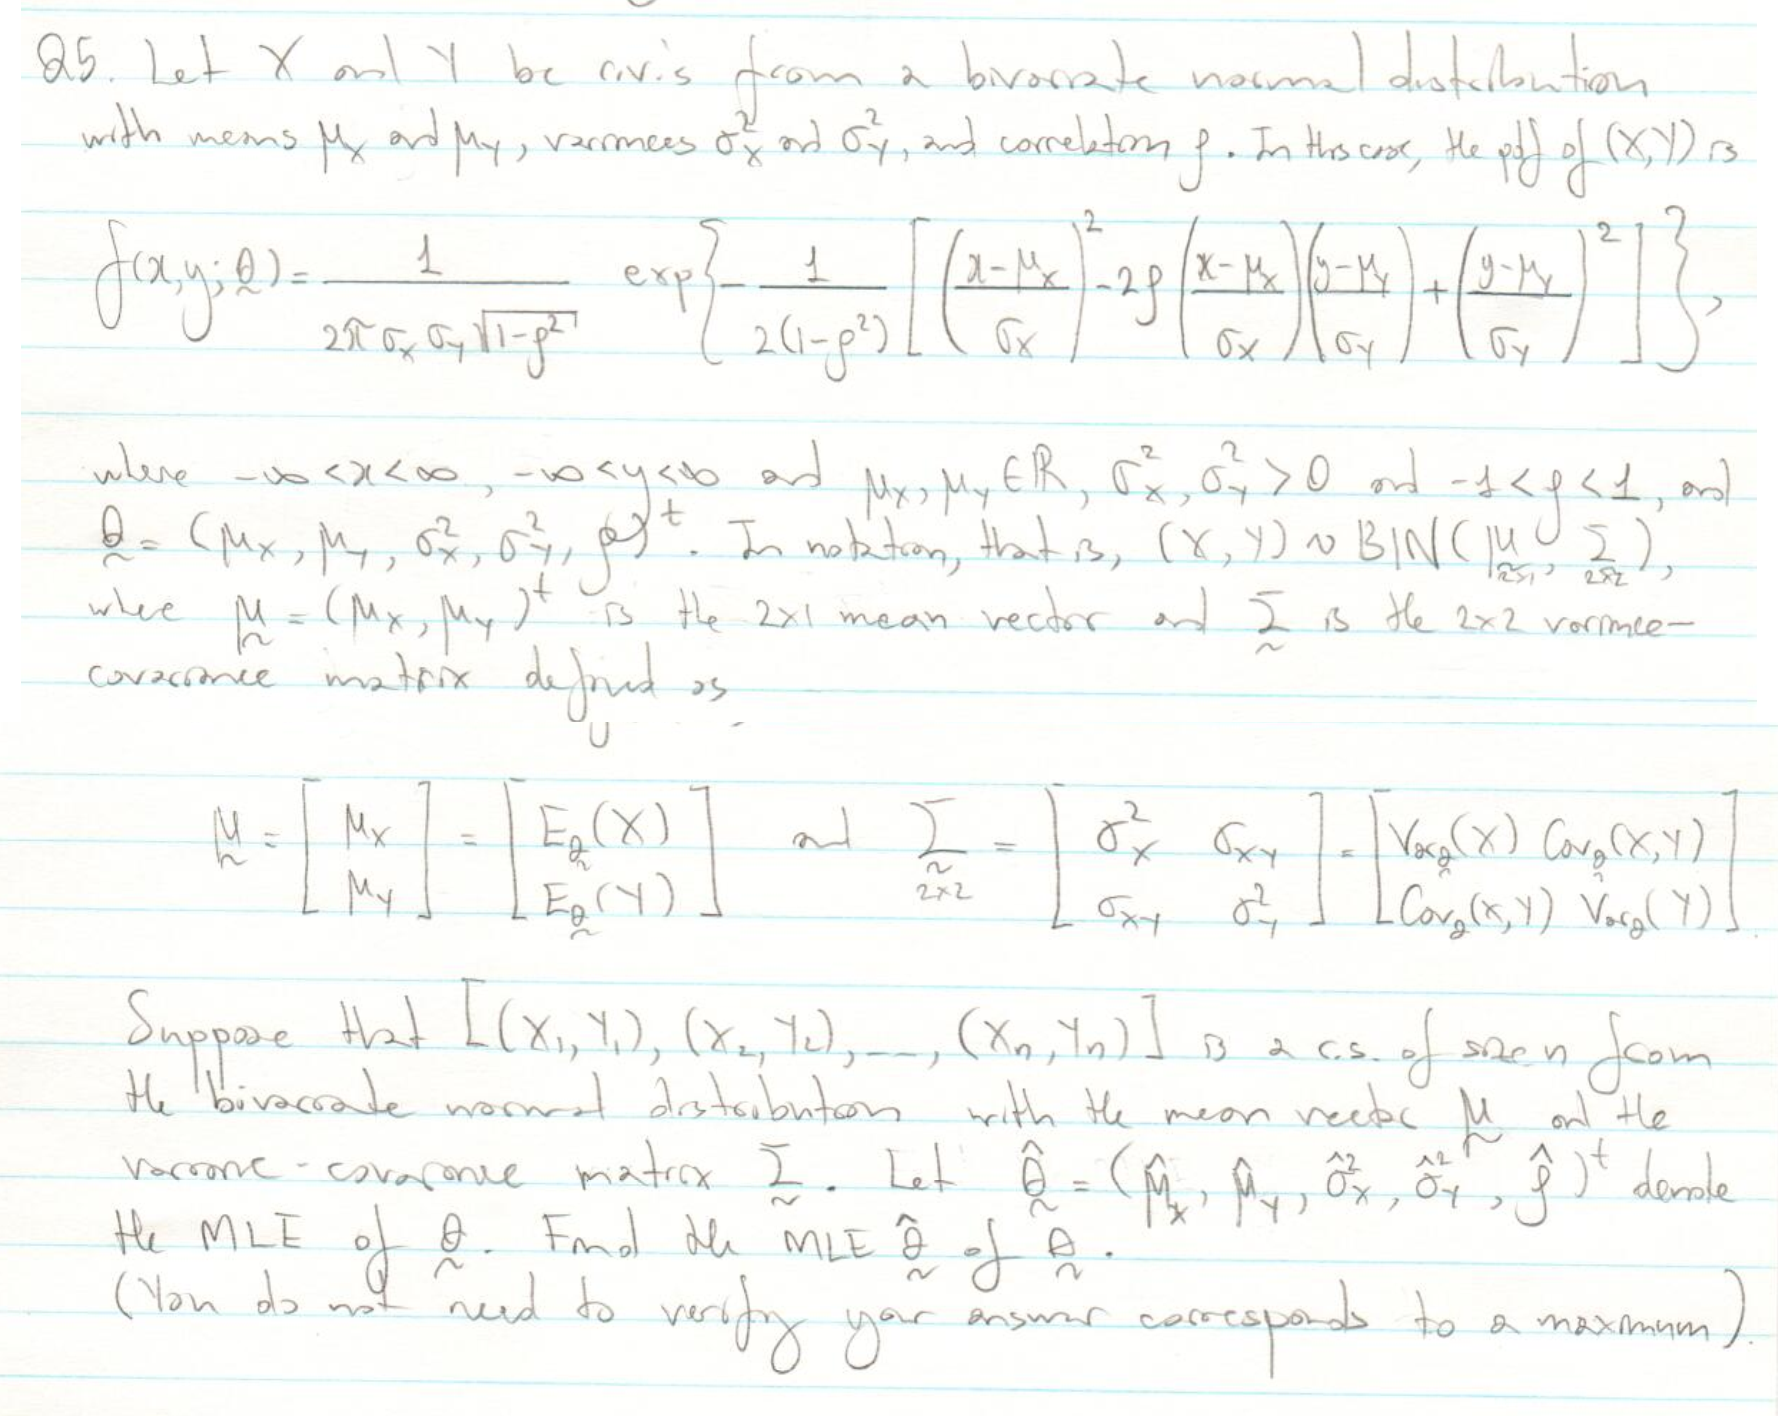 Q5. Let X and Y be r.v.'s from a bivariate normal distribution
with means μ_X and μ_Y, variances σ²_X and σ²_Y, and correlation ρ. In this case, the pdf of (X,Y) is
f(x,y;θ) = 1/(2πσ_Xσ_Y√(1-ρ²)) exp{-1/(2(1-ρ²)) [((x-μ_X)/σ_X)² - 2ρ((x-μ_X)/σ_X)((y-μ_Y)/σ_Y) + ((y-μ_Y)/σ_Y)²]},
where -∞<x<∞, -∞<y<∞ and μ_X, μ_Y ∈ ℝ, σ²_X, σ²_Y > 0 and -1<ρ<1, and
θ = (μ_X, μ_Y, σ²_X, σ²_Y, ρ)^t. In notation, that is, (X,Y) ~ BIN(μ_{2x1}, Σ_{2x2}),
where μ = (μ_X, μ_Y)^t is the 2x1 mean vector and Σ is the 2x2 variance-
covariance matrix defined as
μ = [μ_X; μ_Y] = [E_θ(X); E_θ(Y)] and Σ_{2x2} = [σ²_X σ_XY; σ_XY σ²_Y] = [Var_θ(X) Cov_θ(X,Y); Cov_θ(X,Y) Var_θ(Y)].
Suppose that [(X₁,Y₁), (X₂,Y₂), ..., (Xn,Yn)] is a r.s. of size n from
the bivariate normal distribution with the mean vector μ and the
variance-covariance matrix Σ. Let θ̂ = (μ̂_X, μ̂_Y, σ̂²_X, σ̂²_Y, ρ̂)^t denote
the MLE of θ. Find the MLE θ̂ of θ.
(You do not need to verify your answer corresponds to a maximum).